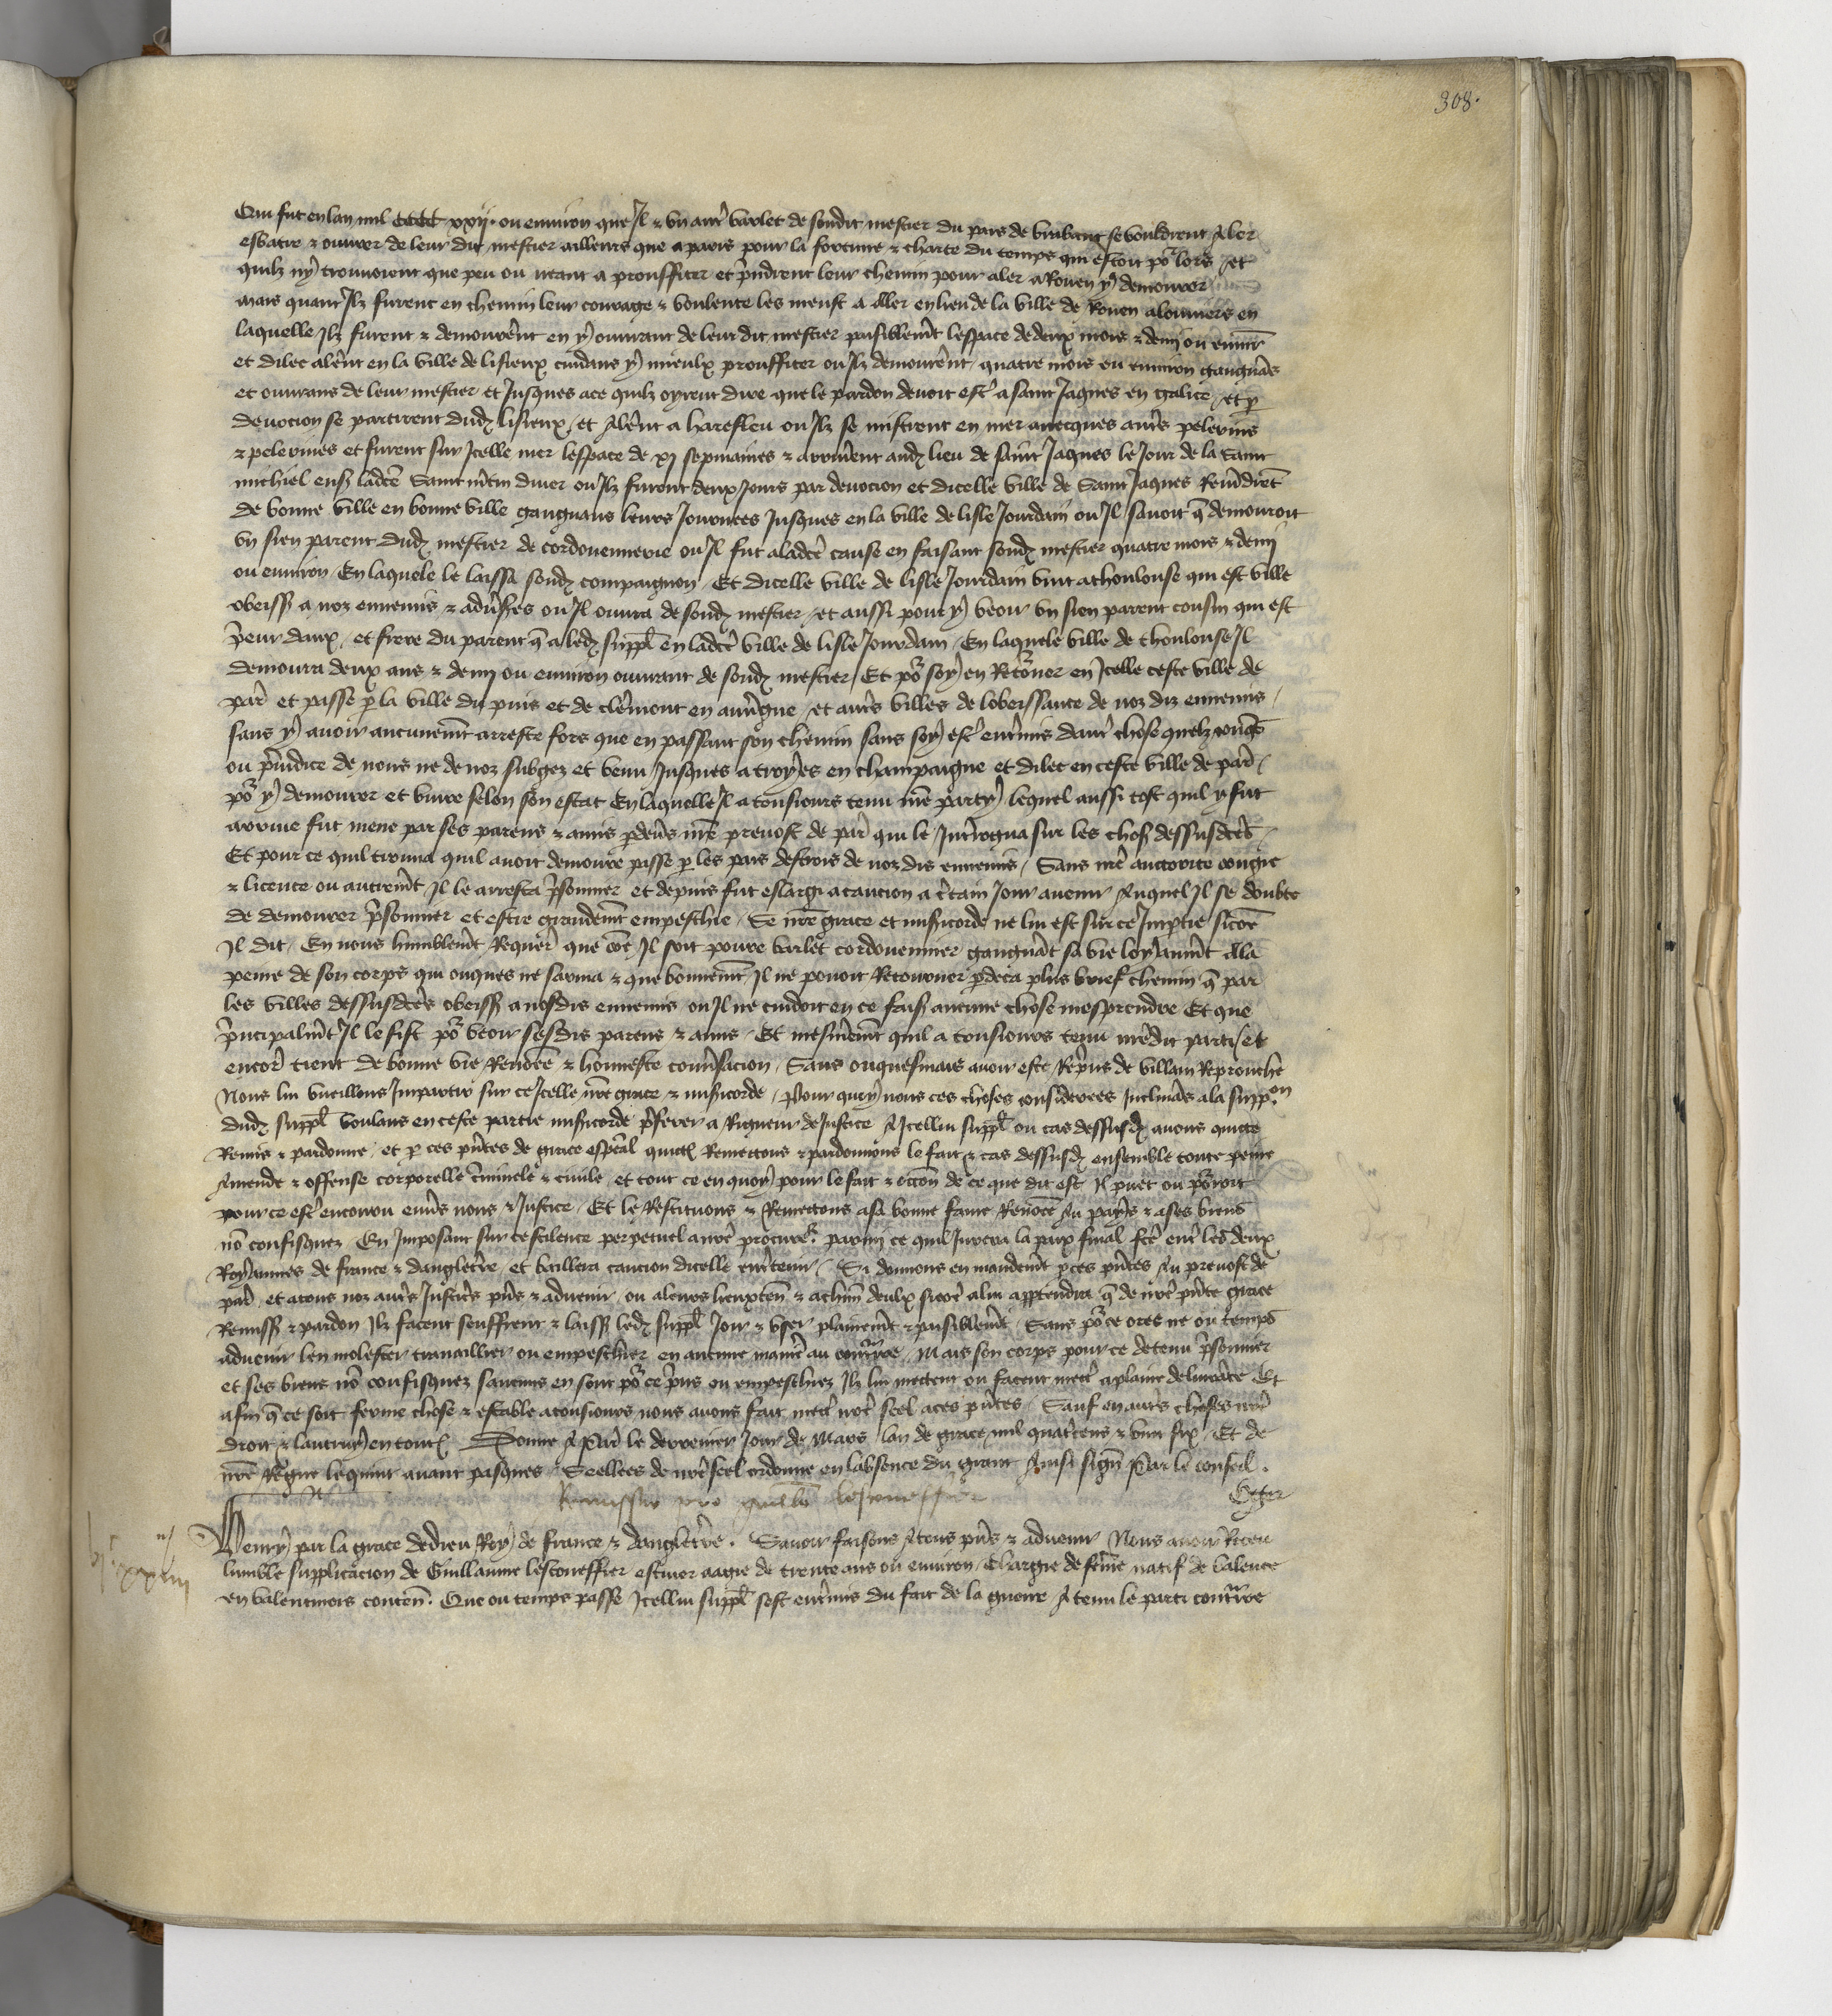 308.
Qui fut en lan mil CCCC xxij. ou environ que Il & un autr varlet de sondit mestier du pais de breban se vouldrent Aler
esbatre & ouvrer de leur dit mestier ailleurs que a paris pour la fortune & charte du temps qui estoit po lors / et
quilz ny trouvoient que peu ou neant a prouffiter et prindrent leur chemin pour aler a Rouen y demourer
mais quant Ilz furent en chemin leur courage & voulente les meust a aller en lieu de la ville de Rouen a louviers en
laquelle Ilz furent & demourent en y ouvrant de leur dit mestier paisiblemt lespace de deux mois & demi ou envir
et dilec alerent en la ville de lisieux cuidans y mieulx prouffiter ou Ilz demourent quatre mois ou environ gaignas
et ouvrans de leur mestier et Jusques ace quilz oyrent dire que le pardon devoit estr a saint Jaques en galice / et p
devocion se partirent dud lisieux / et Alerent a harefleu ou Ilz se mistrent en mer avecques autrs pelerins
& pelerines et furent sur Icelle mer lespace de xj sepmaines & arriverent aud lieu de saint Jaques le Jour de la saint
michiel ens ladte Saint mtin diver ou Ilz furent deux Jours par devocion et dicelle ville de Saint Jaques Revidret
de bonne ville en bonne ville gaignans leurs Journees Jusques en la ville de lisle Jourdain ou Il savoit q demouroit
un sien parent dud mestier de cordouennerie ou Il fut a ladte cause en faisant sond mestier quatre mois & demi
ou environ En laquele le laissa sond compaignon Et dicelle ville de lisle Jourdain vint a thoulouse qui est ville
obeiss a noz ennemis & advses ou Il ouvra de sond mestier / et aussi pour y veoir un sien parent cousin qui est
prieur daux / et frere du parent q a led suppl en ladte ville de lisle Jourdain En laquele ville de thoulouse Il
demoura deux ans & demi ou environ ouvrant de sond mestier Et po soy en Retorner en Icelle ceste ville de
par et passe p la ville du puis et de clermont en auvgne / et autrs villes de lobeissance de noz diz ennemis
sans y avoir aucunemt arreste fors que en passant son chemin sans soy estr entrmis dautr chose quelzconqs
ou preiudice de nous ne de noz subgez et venu Jusques a troyes en champaigne et dilec en ceste ville de par
po y demourer et vivre selon son estat En laquelle Il a tousiours tenu nre party lequel aussi tost quil y fut
arrive fut mene par ses parens & amis p devers nre prevost de par qui le Interrogua sur les choses dessusdtes
Et pour ce quil trouva quil avoit demoure passe p les pais destrois de noz dis ennemis / Sans nre auctorite congie
& licence ou autremt Il le arresta prisonnier et depuis fut eslargi a caucion a certain Jour avenir Auquel Il se doubte
de demourer prisonnier et estre grandemt empeschie Se nre grace et misericorde ne lui est sur ce Impartie sicoe
Il dit En nous humblemt Requer que coe Il soit povre varlet cordouennier gaignat sa vie loyaumt A la
peine de son corps qui onques ne sarma & que bonnemt Il ne povoit Retourner p deca plus brief chemin q par
les villes dessusdtes obeiss a nosdis ennemis ou Il ne cuidoit en ce fais aucune chose mesprendre Et que
principalmt Il le fist po veoir sesdis parens & amis Et mesmemt quil a tousiours tenu nredit parti et
encor tient de bonne vie Renoee & honneste convsacion Sans onquesmais avoir este Repris de villain Reprouche
Nous lui vueillons Impartir sur ce Icelle nre grace & misericorde Pour quoy nous ces choses considerees Inclinas a la suppon
dud suppl voulans en ceste partie misericorde prferer a Rigueur de Justice A Icellui suppl ou cas dessusd avons quicte
Remis & pardonne / et p ces pntes de grace espcial quicts Remettons & pardonnons le fait & cas dessusd ensemble toute peine
Amende & offense corporelle criminele & civile / et tout ce en quoy pour le fait & occon de ce que dit est Il puet ou porroit
pour ce estr encouru envers nous & Justice Et le Restituons & Remettons a sa bonne fame Renoee Au pays & a ses biens
no confisquez En Imposant sur ce scilence perpetuel a nre procur parmi ce quil Jurera la paix final fte entr les deux
Royaumes de france & dangleterre et baillera caucion dicelle entrtenir Si donnons en mandemt p ces pntes Au prevost de
par et a tous noz autrs Justicers pns & advenir ou a leurs lieuxten & a chun deulx sicoe a lui appendra q de nre pnte grace
Remiss & pardon Ilz facent seuffrent & laiss led suppl Joir & user plainemt & paisiblemt Sans po ce ores ne ou temps
advenir len molester travaillier ou empeschier en aucune manier au contraire Mais son corps pour ce detenu prisonnier
et ses biens no confisquez saucuns en sont po ce pris ou empeschiez Ilz lui mettent ou facent mettr a plaine delivrace Et
afin q ce soit ferme chose & estable a tousiours nous avons fait mettr nre seel a ces pntes Sauf en autrs choses nre
droit & lautruy en touts Donne A Par le derrenier Jour de Mars lan de grace mil quatrcens & vint six Et de
nre Regne le quint avant pasques Seellees de nre seel ordonne en labsence du grant Ainsi sign Par le conseil.
Remissio pro guillo lescoueffier
Oger
Henry par la grace de dieu Roy de france & dangleterre. Savoir faisons A tous pns & advenir Nous avoir Receu
lumble supplicacion de Guillaume lescoueffier estuvier aagie de trente ans ou environ Chargie de feme natif de valence
en valentinois conten. Que ou temps passe Icellui suppl sest entrmis du fait de la guerre A tenu le parti contraire